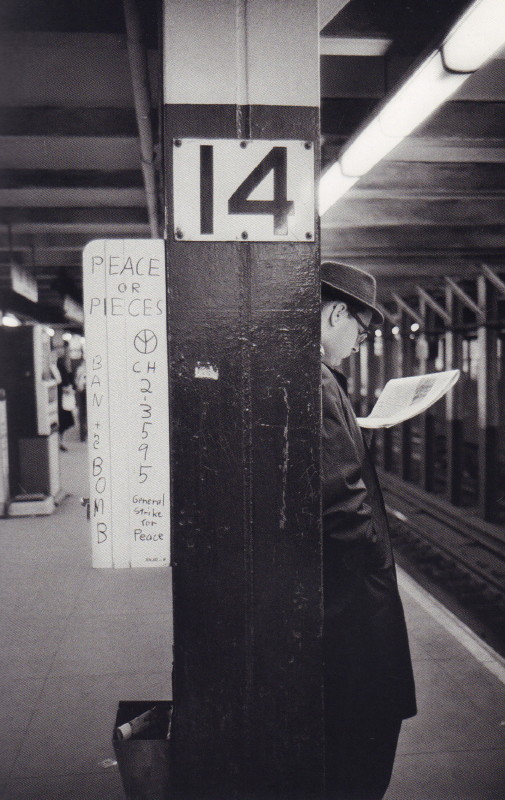 14
PEACE
OR
PIECES
BAN the BOMB
CH
2-3595
General
Strike
for
Peace